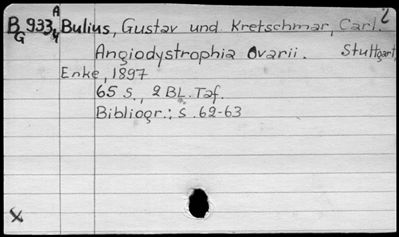 2
A
B 933, Bulius, Gustav und Kretschmar, Carl.
G 4
Angiodystrophia Ovarii. Stuttgart,
Enke, 1897
65 S., 2 Bl. Taf.
Bibliogr.: s. 62-63
X